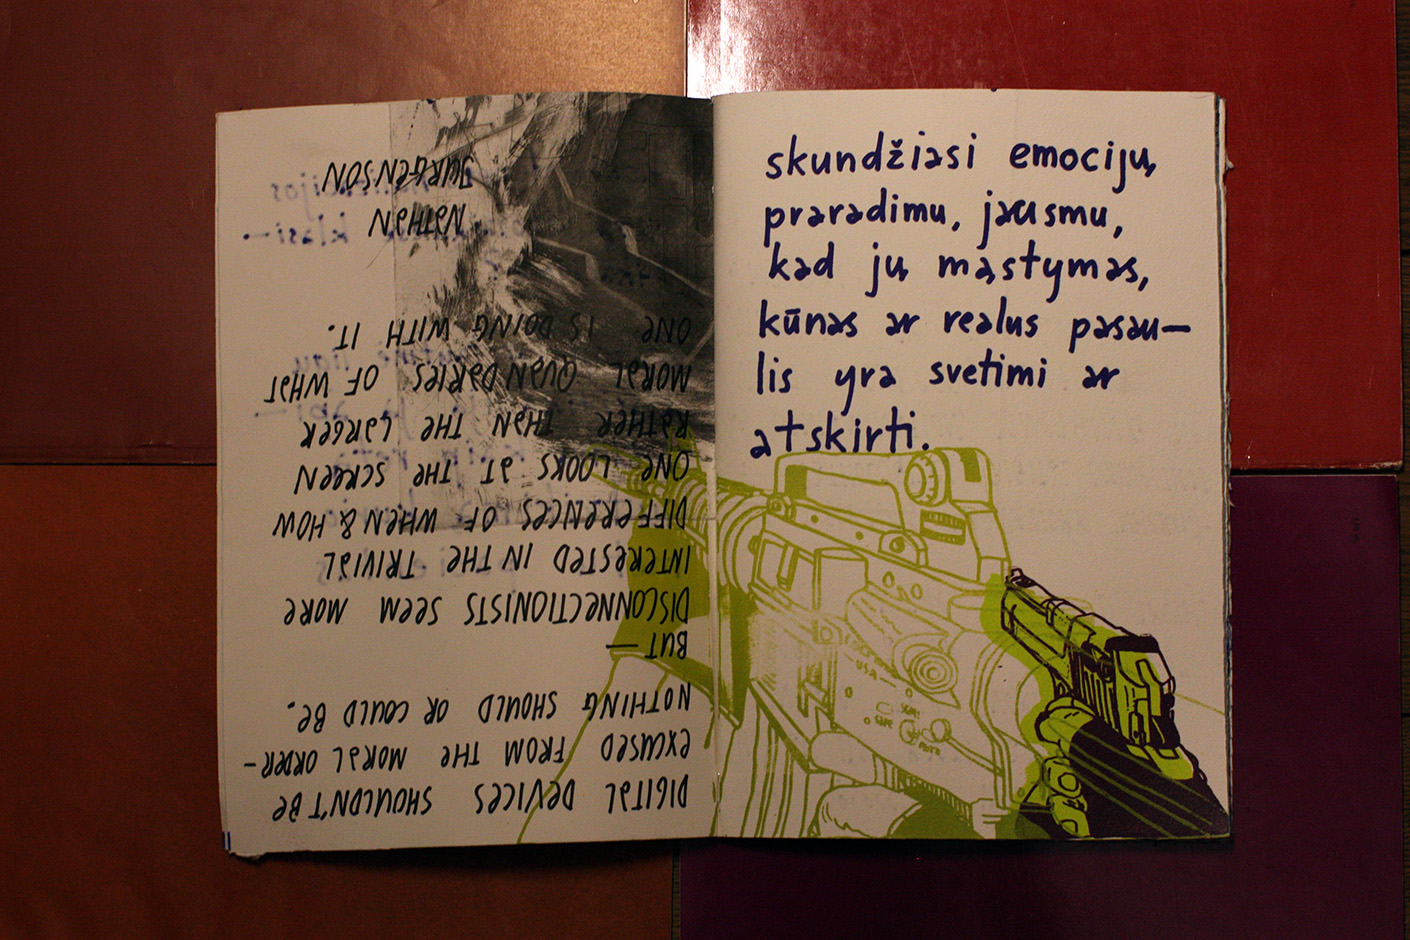 DIGITAL DEVICES SHOULDN'T BE
EXCUSED FROM THE MORAL ORDER-
NOTHING SHOULD OR COULD BE.
BUT —
DISCONNECTIONISTS SEEM MORE
INTERESTED IN THE TRIVIAL
DIFFERENCES OF WHEN & HOW
ONE LOOKS AT THE SCREEN
RATHER THAN THE LARGER
MORAL QUANDARIES OF WHAT
ONE IS DOING WITH IT.
NATHAN
JURGENSON
skundžiasi emocijų
praradimu, jausmu,
kad jų mąstymas,
kūnas ar realus pasau-
lis yra svetimi ar
atskirti.
USA
SEMI
SAFE
AUTO